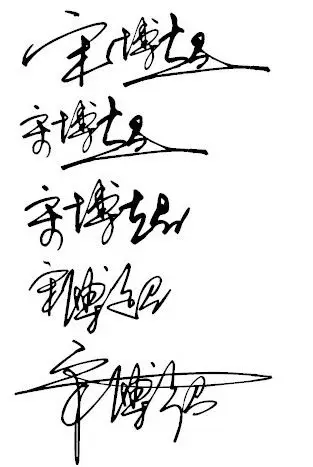 宋博超
宋博超
宋博超
宋博超
宋博超